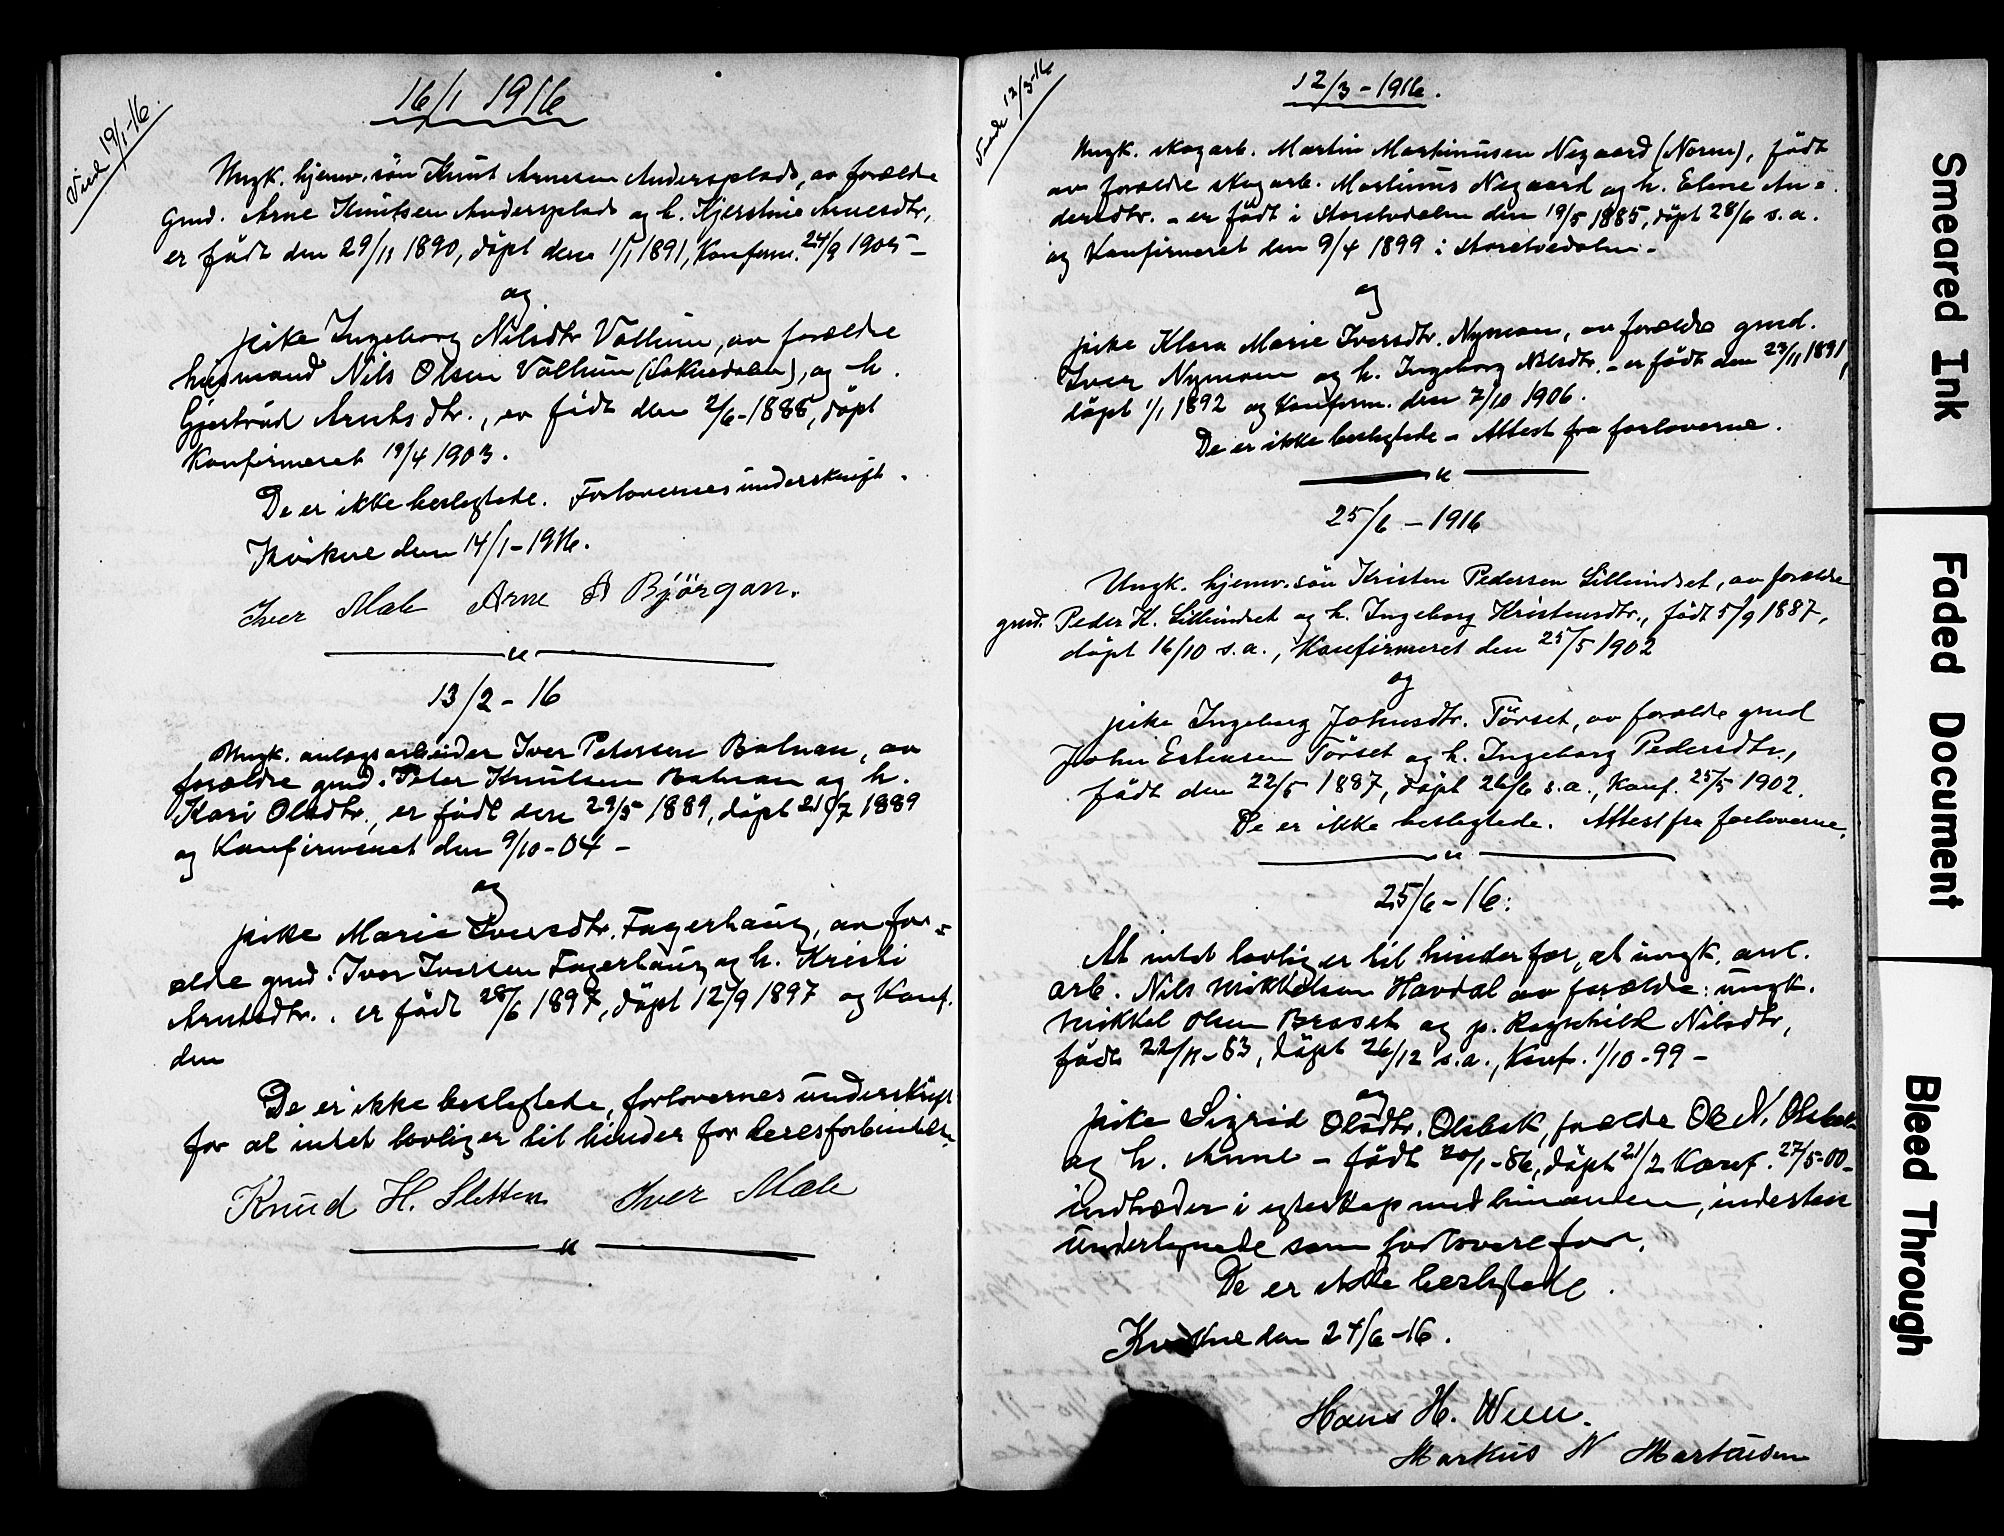 Viel 19/1-16.
16/1 1916
Ungk. hjemv. søn Knut Arnesen Andersplads, av forældre
Grud. Arne Knutsen Andersplads og h. Kjerstine Arnesdtr,
er født den 29/11 1890, døpt den 1/1 1891, Konferm. 24/9 1905 –
og
pike Ingeborg Nilsdtr Vollum, av forældre
husmand Nils Olsen Vollum (Soknedalen), og h.
Gjertrud Arntsdtr., er født den 2/6-1888, døpt
Konfirmeret 19/4 1903.
De er ikke beslegtede. Forlovernes underskrift.
Kvikne den 14/1-1916.
Iver Mæle Arne A Bjørgan.
13/2 - 16
Ungk. anlægsarbeider Iver Petersen Bolman, av
forældre grud. Peter Knutsen Bolman og h.
Kari Olsdtr., er født den 29/5 1889, døpt 21/7 1889
og Konfirmeret den 9/10-04 –
og
pike Marie Iversdtr. Fagerhaug, av for-
ældre grud. Iver Iversen Fagerhaug og h. Kristi
Arntsdtr. . er født 28/6 1897, døpt 12/9 1897 og Konf.
den
De er ikke beslegtede, forlovernes underskrift
for at intet lovlig er til hinder for deres forbindelse.
Knud H. Sletten Iver Mæle
Viede 12/3-16
12/3 - 1916.
Ungk. skogarb. Martin Martinusen Negaard (Noren), født
av forældre skogarb. Martinus Negaard og h. Elene An-
dersdtr. – er født i Storelvdalen den 19/5 1885, døpt 28/6 s.a.
og Konfirmeret den 9/4 1899 i Storelvedalen –
og
pike Klara Marie Iversdtr. Nymoen, av forældre grud.
Iver Nymoen og h. Ingeborg Nilsdtr. – er født den 23/11 1891,
døpt 1/1 1892 og Konferm. den 7/10 1906.
De er ikke beslegtede – Attest fra forloverne.
25/6 - 1916
Ungk. hjemv. søn Kristen Pedersen Lilleindset, av forældre
grud. Peder K. Lilleindset og h. Ingeborg Kristensdtr., født 5/9 1887,
døpt 16/10 s.a., Konfirmeret den 25/5 1902
og
pike Ingeborg Johnsdtr. Tørset, av forældre grud
John Estensen Tørset og h. Ingeborg Pedersdtr.,
født den 22/5 1887, døpt 26/6 s.a., Konf. 25/5 1902.
De er ikke beslegtede. Attest fra forloverne.
25/6-16:
At intet lovlig er til hinder for, at ungk. anl.
arb. Nils Mikkelsen Havdal av forældre: ungk.
Mikkel Olsen Brøset og p. Ragnhild Nilsdtr,
født 22/11-83, døpt 26/12 s.a., Konf. 1/10-99 –
og
pike Sigrid Olsdtr. Olsbak, forældre Ole N. Olsbak
og h. Anne – født 20/1-86, døpt 21/2 Konf. 27/5-00 –
indtræder i egteskap med hinanden, indestaar
undertegnede som forlovere for.
De er ikke beslegtede.
Kvikne den 24/6-16.
Hans H. Ween.
Markus N Martinsen
Smeared Ink
Faded Document
Bleed Through